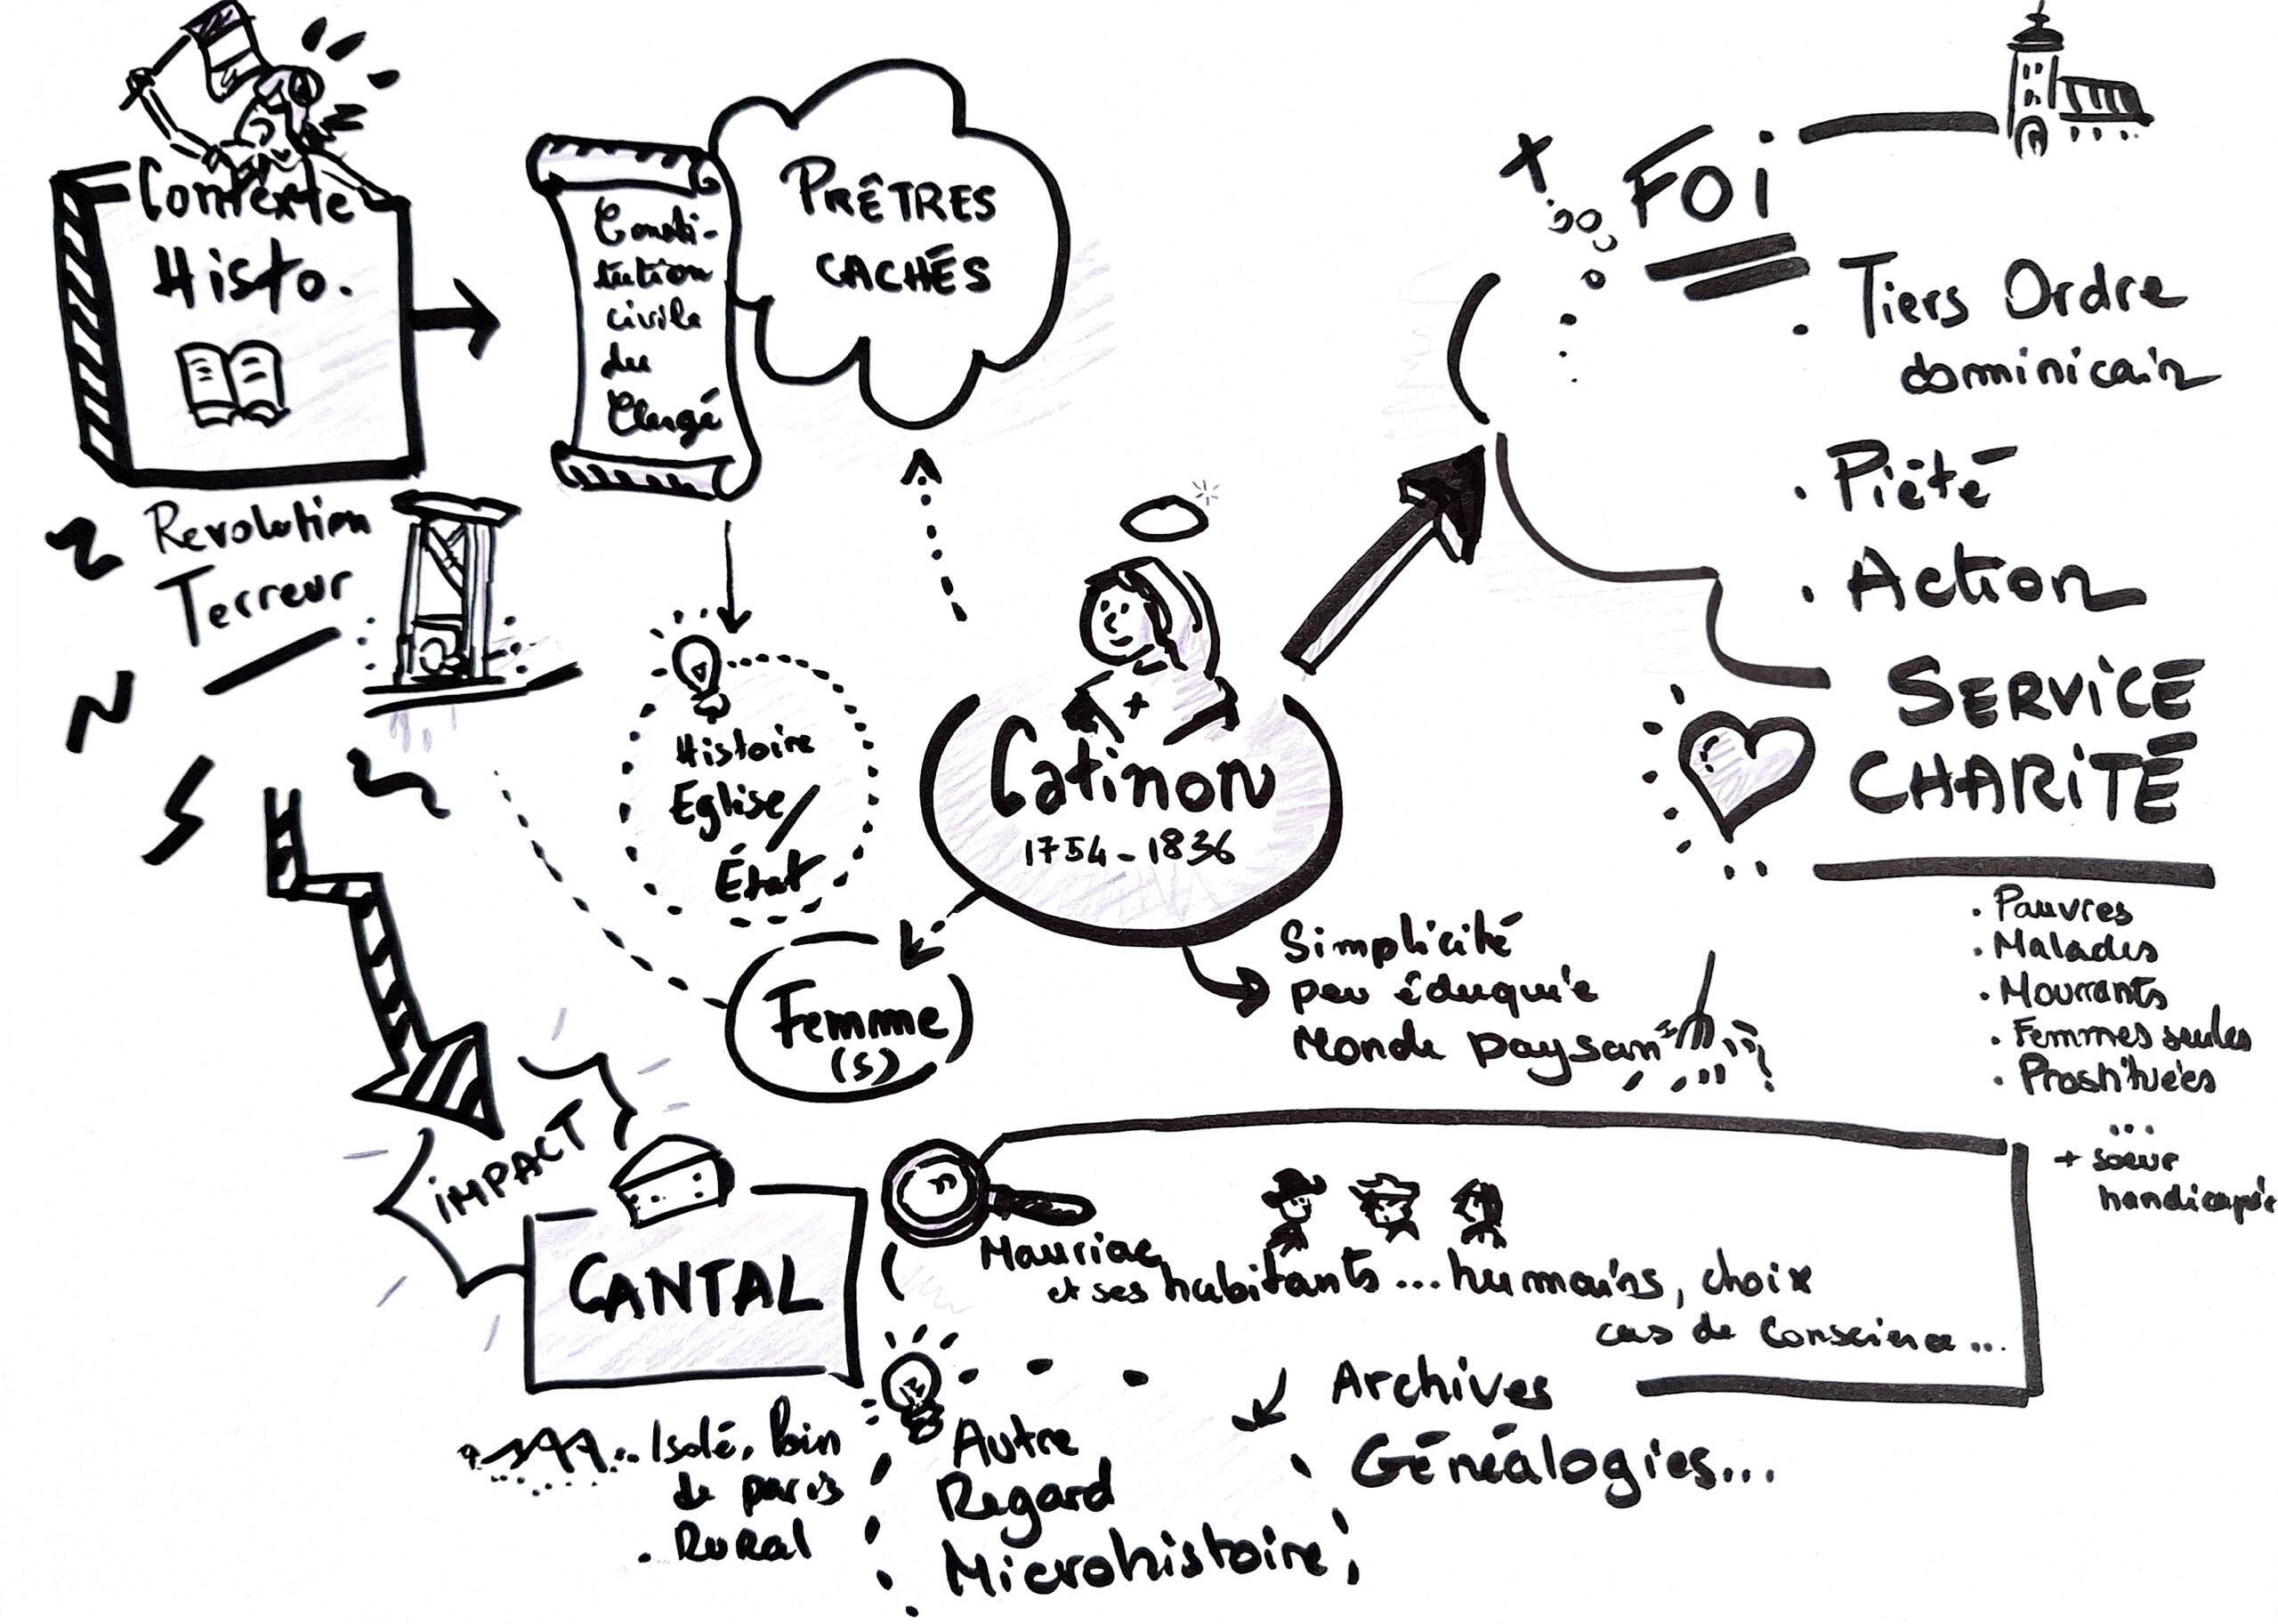 Contexte
Histo.
Consti-
tution
civile
du
Clergé
PRÊTRES
CACHÉS
Revolution
Terreur
Histoire
Eglise/
État
Catinon
1754-1836
Femme
(s)
FOi
. Tiers Ordre
dominicain
. Piété
. Action
SERViCE
CHARiTÉ
. Pauvres
. Malades
. Mourrants
. Femmes seules
. Prostituées
...
+ soeur
handicapée
Simplicité
peu éduquée
Monde paysan
iMPACT
CANTAL
Isolé, loin
de paris
. Rural
Mauriac
et ses habitants ... humains, choix
cas de Conscience ...
Autre
Regard
Microhistoire
Archives
Généalogies...